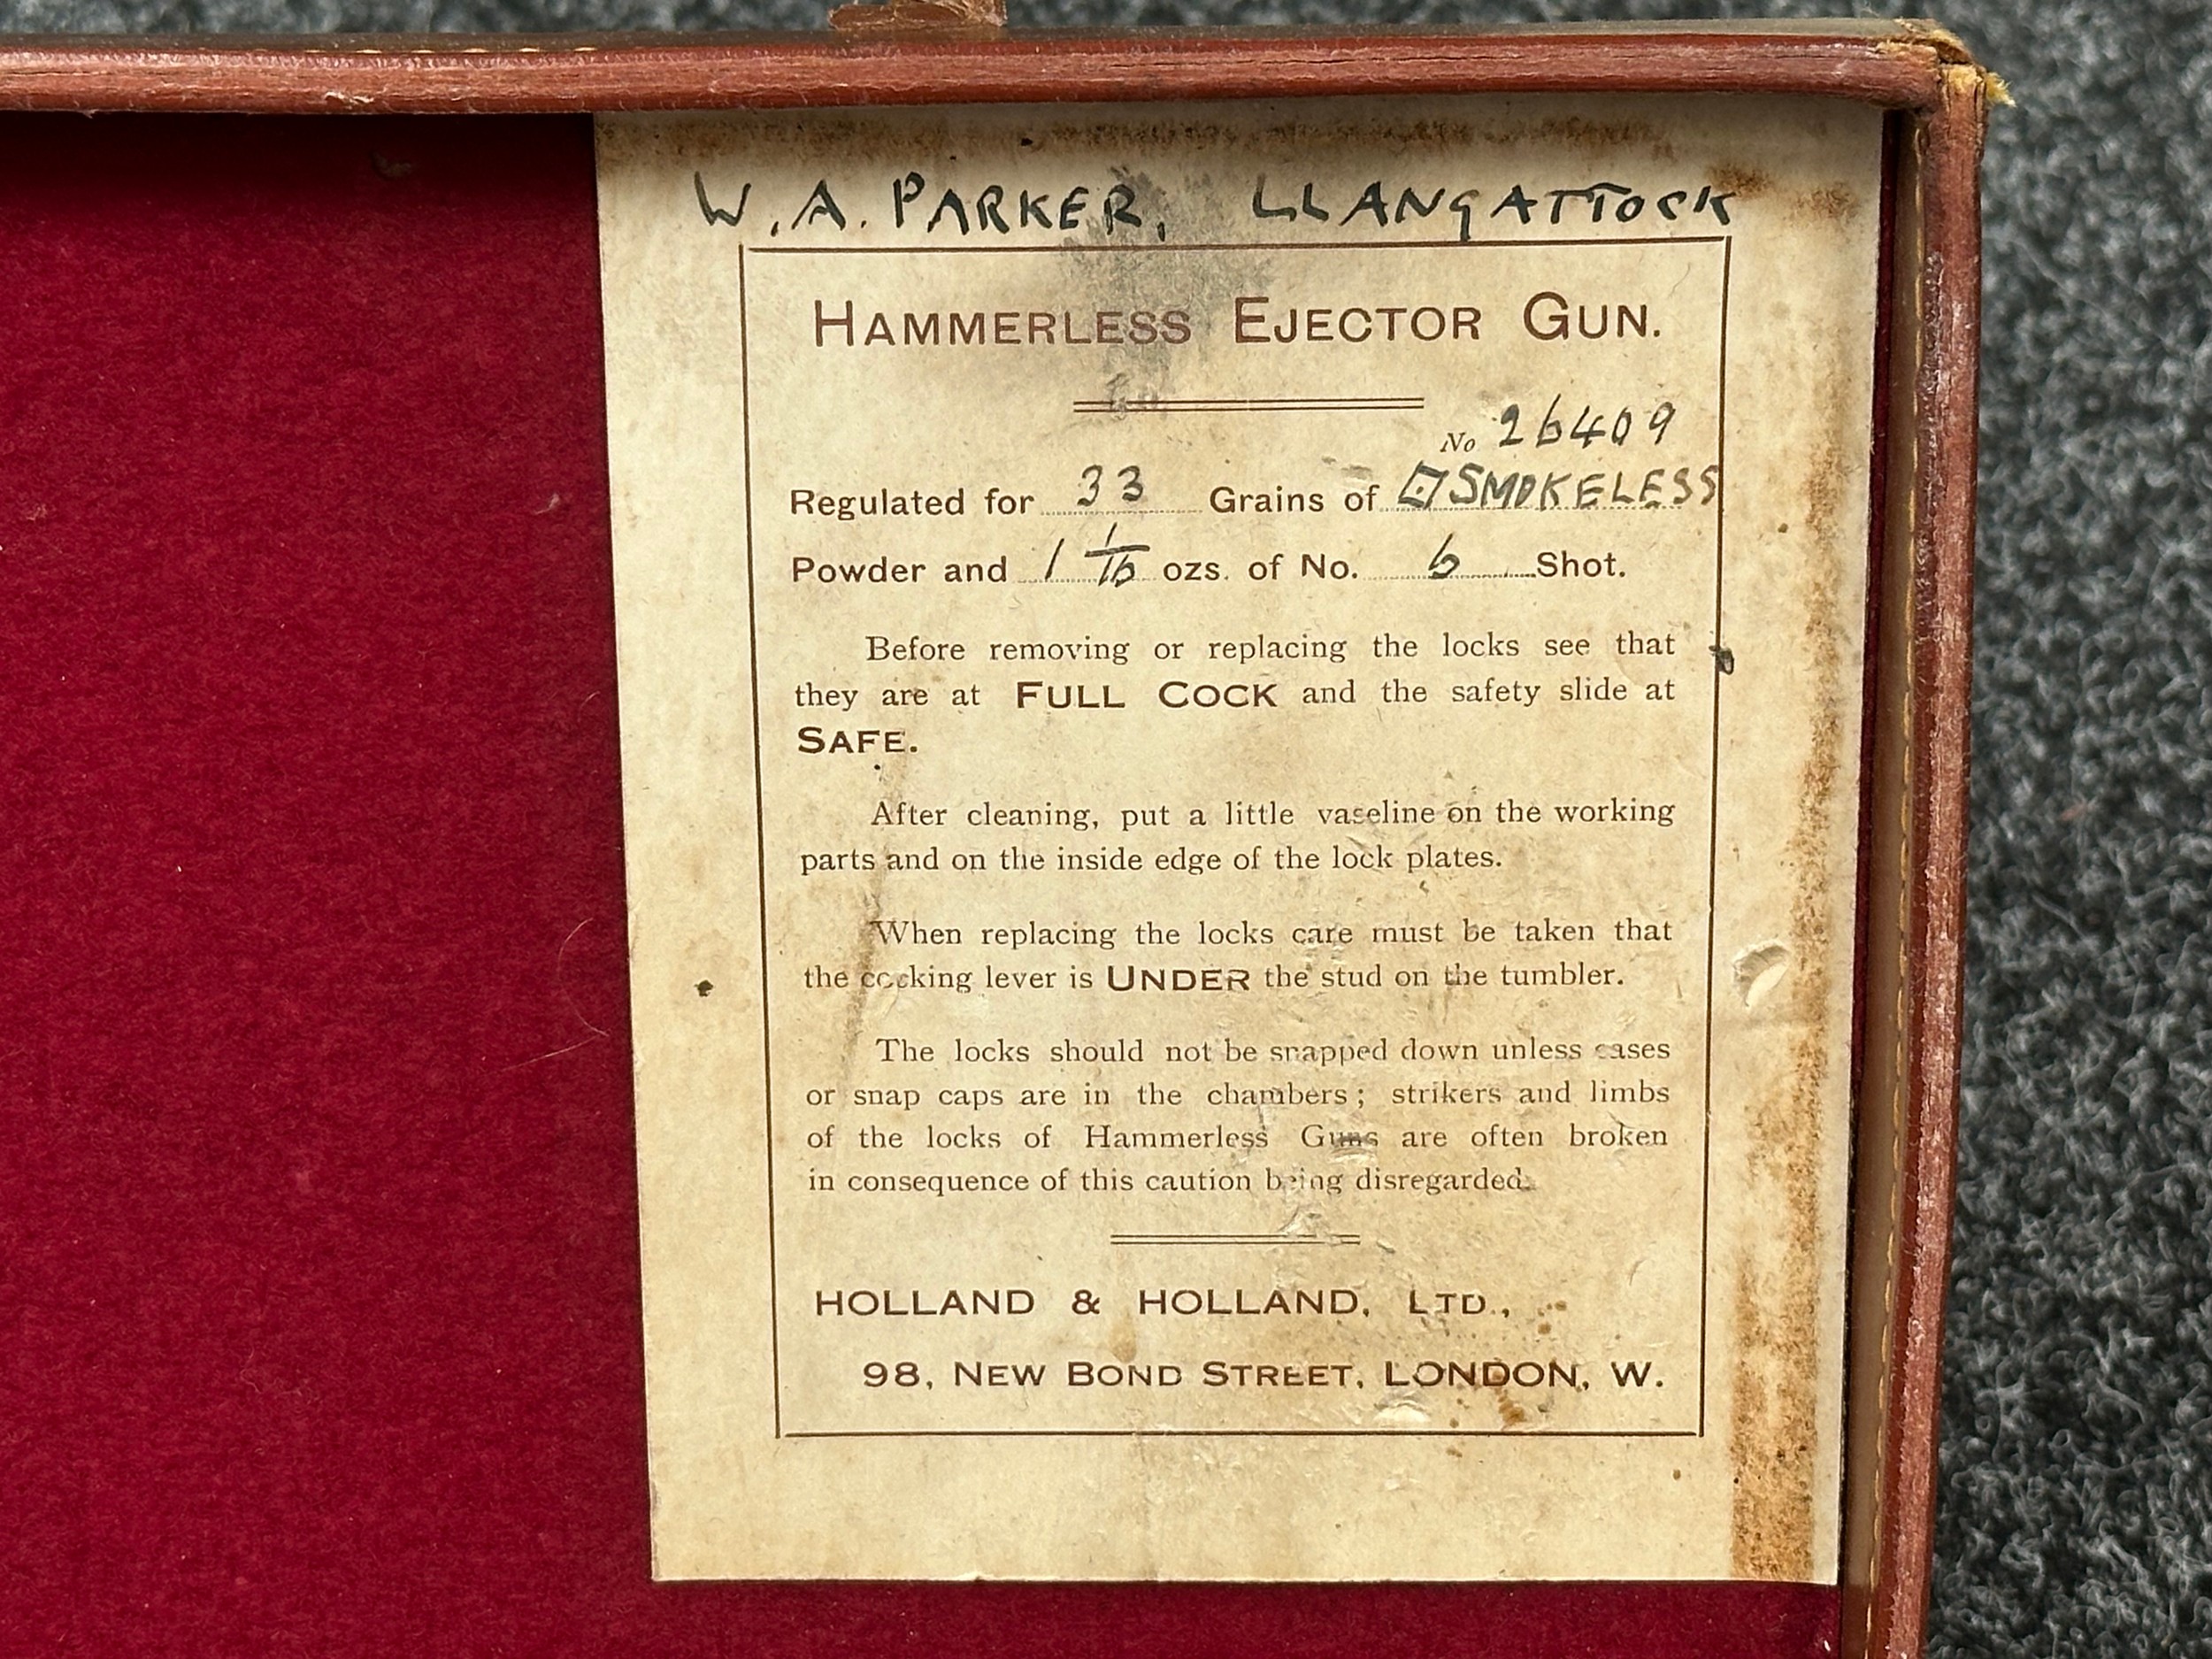 W.A. PARKER, LLANGATTOCK
HAMMERLESS EJECTOR GUN.
No 26409
Regulated for 33 Grains of SMOKELESS
Powder and 1 1/16 ozs. of No. 6 Shot.
Before removing or replacing the locks see that
they are at FULL COCK and the safety slide at
SAFE.
After cleaning, put a little vaseline on the working
parts and on the inside edge of the lock plates.
When replacing the locks care must be taken that
the cocking lever is UNDER the stud on the tumbler.
The locks should not be snapped down unless cases
or snap caps are in the chambers; strikers and limbs
of the locks of Hammerless Guns are often broken
in consequence of this caution being disregarded.
HOLLAND & HOLLAND, LTD.,
98, NEW BOND STREET, LONDON, W.